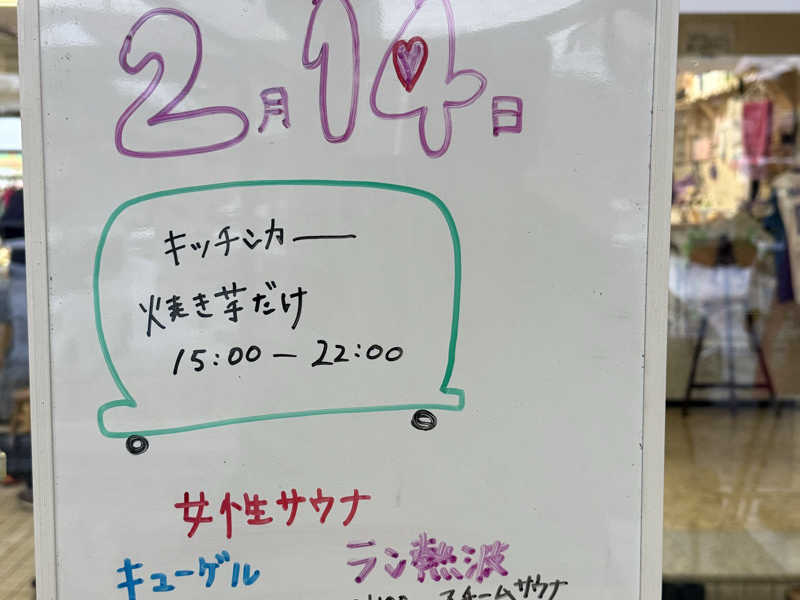 2月14日
キッチンカー
焼き芋だけ
15:00ー22:00
女性サウナ
キューゲル
ラン熱波
スチームサウナ